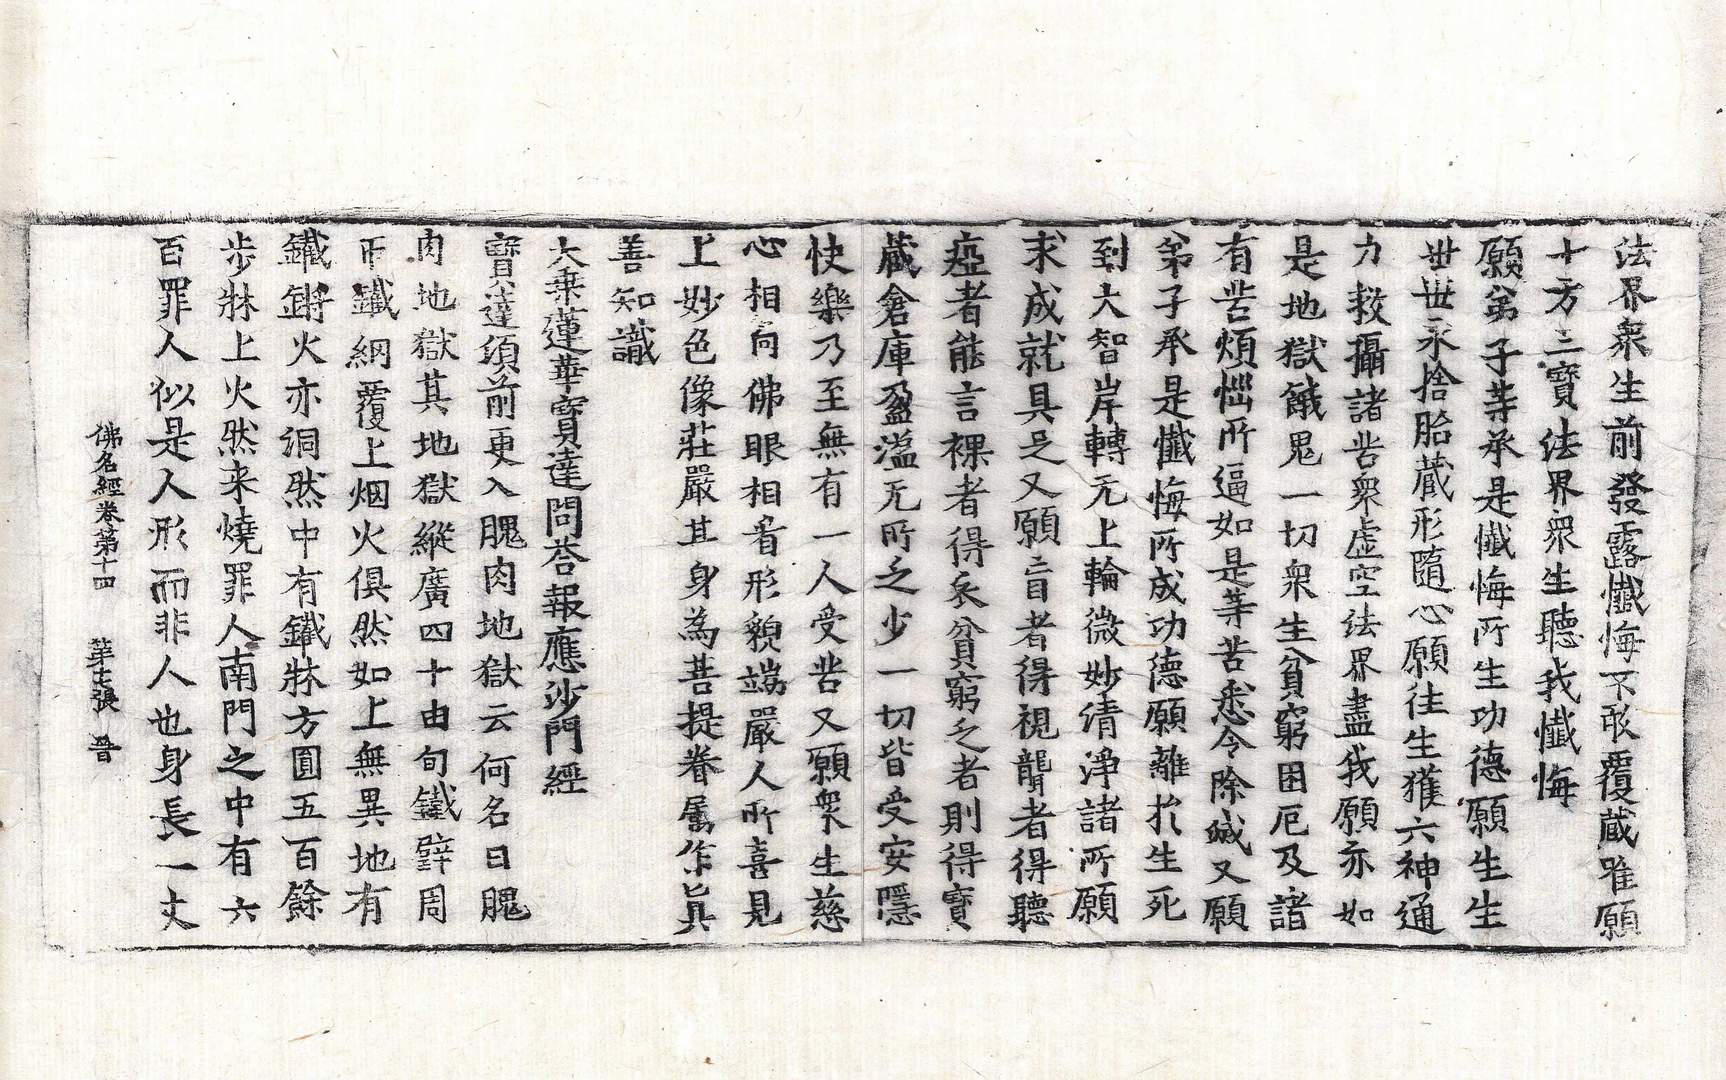 法界衆生前發露懺悔不敢覆藏唯願
十方三寶法界眾生聽我懺悔
願弟子等承是懺悔所生功德願生生
世世永捨胎藏形隨心願往生獲六神通
力救攝諸苦衆虛空法界盡我願亦如
是地獄餓鬼一切衆生貧窮困厄及諸
有苦煩惱所逼如是等苦悉令除滅又願
弟子承是懺悔所成功德願離於生死
到大智岸轉无上輪微妙清淨諸所願
求成就具足又願盲者得視聾者得聽
瘂者能言裸者得衣貧窮乏者則得寶
藏倉庫盈溢无所乏少一切皆受安隱
快樂乃至無有一人受苦又願衆生慈
心相向佛眼相看形貌端嚴人所喜見
上妙色像莊嚴其身為菩提眷屬作真
善知識
大乗蓮華寶達問荅報應沙門經
寶達須前更入䐣肉地獄云何名曰䐣
肉地獄其地獄縱廣四十由旬鐵壁周
帀鐵網覆上烟火俱然如上無異地有
鐵鏘火亦洞然中有鐵牀方圓五百餘
步牀上火然来燒罪人南門之中有六
百罪人似是人形而非人也身長一丈
佛名經卷第十四　第七張　晉